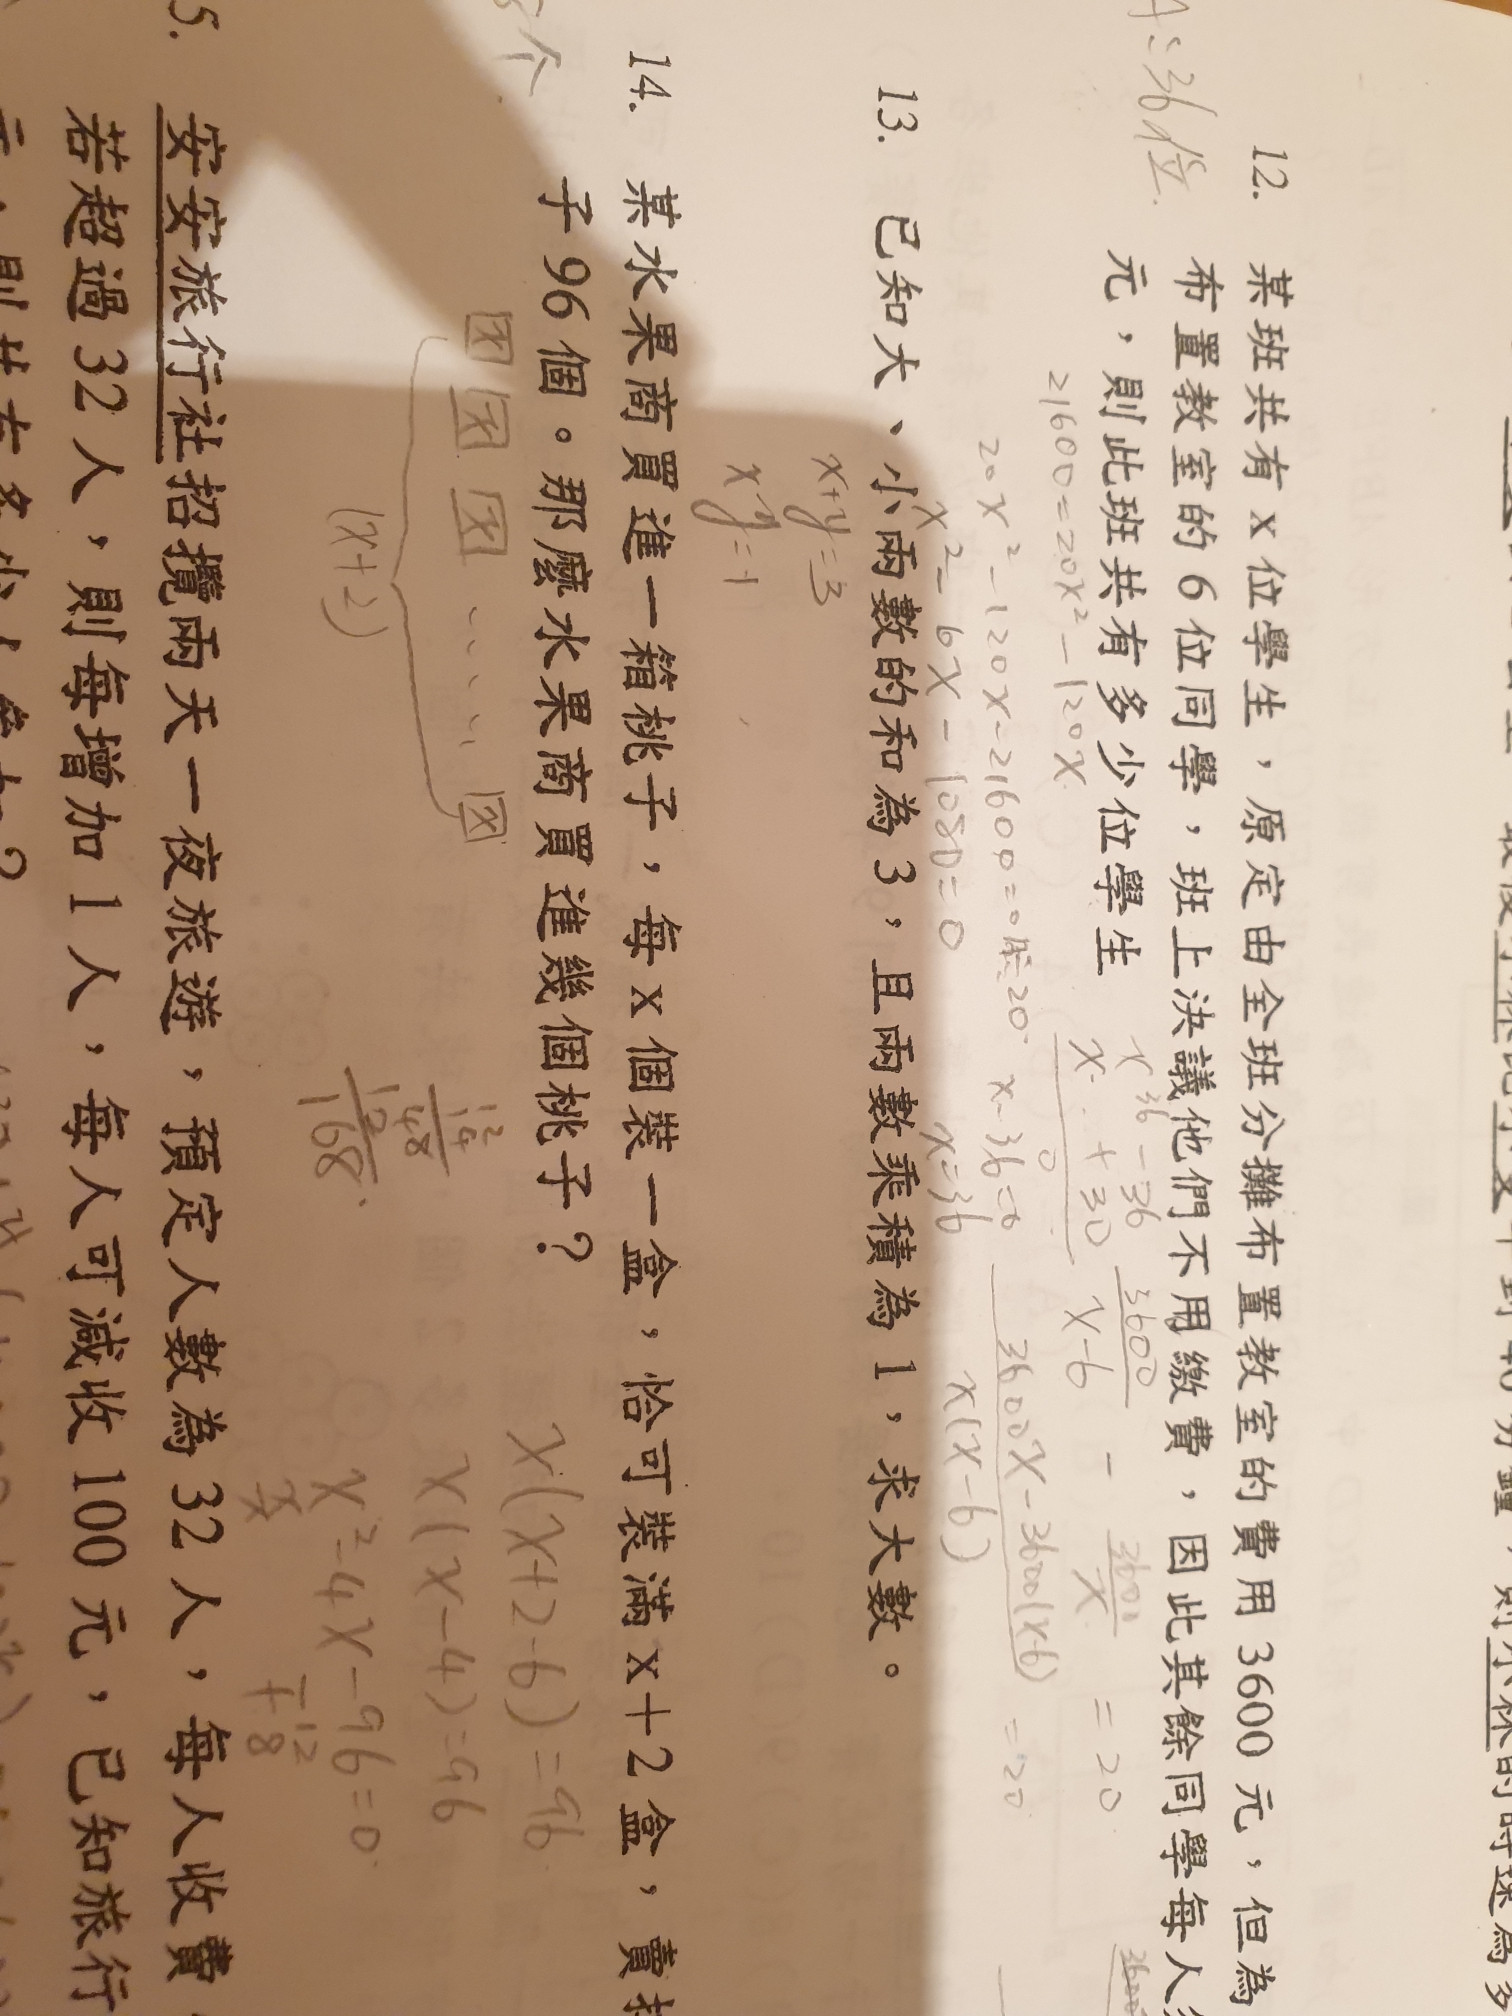 A=36位.
12. 某班共有x位學生，原定由全班分攤布置教室的費用3600元，但為
布置教室的6位同學，班上決議他們不用繳費，因此其餘同學每人
元，則此班共有多少位學生
x 36 -36
x. +30
0
3600/x-6 - 3600/x = 20
21600=20x²-120x
20x²-120x-21600=0
÷20
x-36=0
3600x-3600(x-6)
x(x-6)
=20
x²-6x-1080=0
x=36
13. 已知大、小兩數的和為3，且兩數乘積為1，求大數。
x+y=3
x y=1
14. 某水果商買進一箱桃子，每x個裝一盒，恰可裝滿x+2盒，賣
子96個。那麼水果商買進幾個桃子？
个
x(x+2-6)=96
x x x x
12
14
48
12
168.
x(x-4)=96
(x+2)
x²-4x-96=0
x -12
x +8
5. 安安旅行社招攬兩天一夜旅遊，預定人數為32人，每人收費
若超過32人，則每增加1人，每人可減收100元，已知旅行